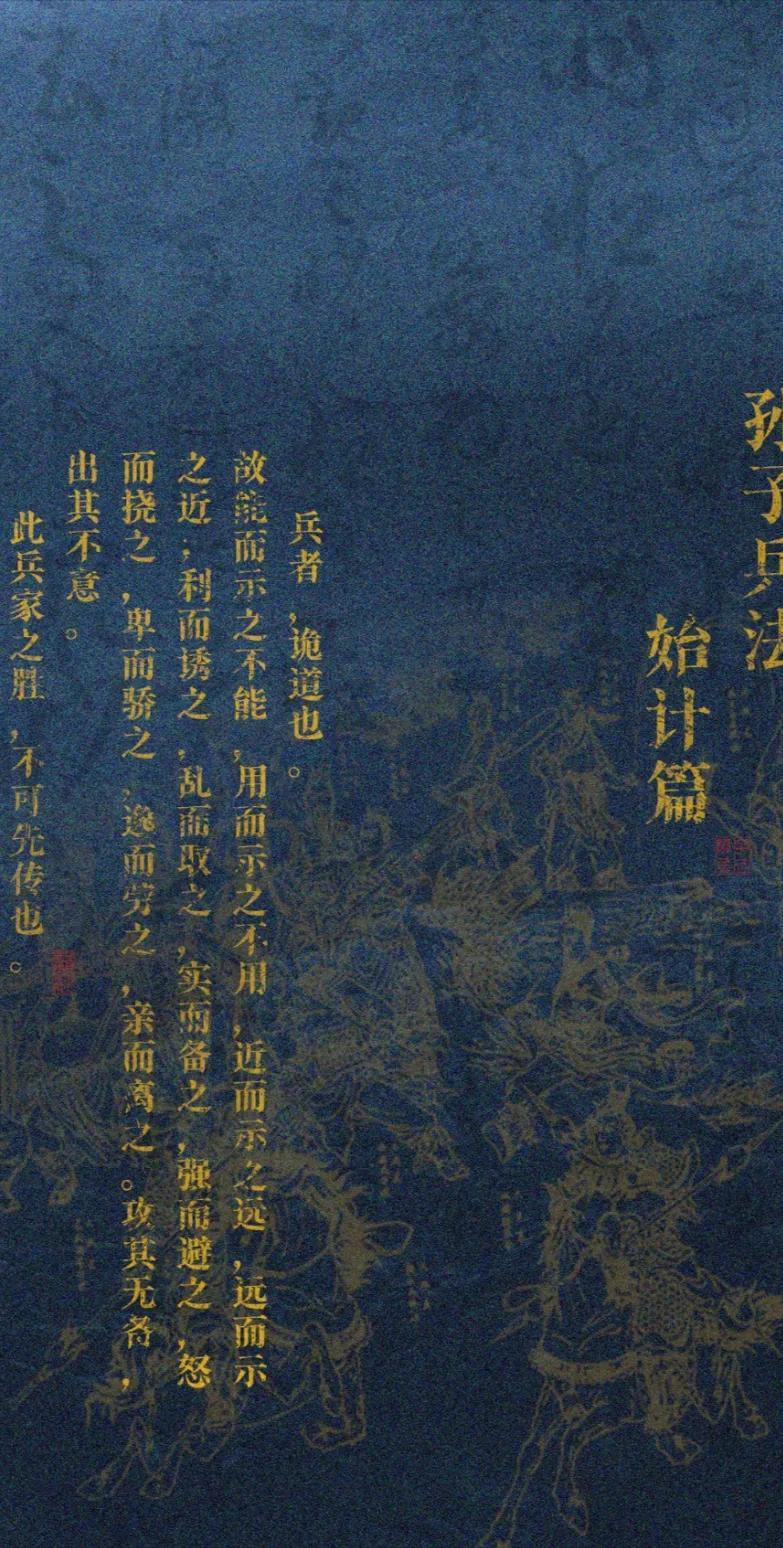 孙子兵法
始计篇
兵者,诡道也。
故能而示之不能,用而示之不用,近而示之远,远而示
之近;利而诱之,乱而取之,实而备之,强而避之,怒
而挠之,卑而骄之,逸而劳之,亲而离之。攻其无备,
出其不意。
此兵家之胜,不可先传也。